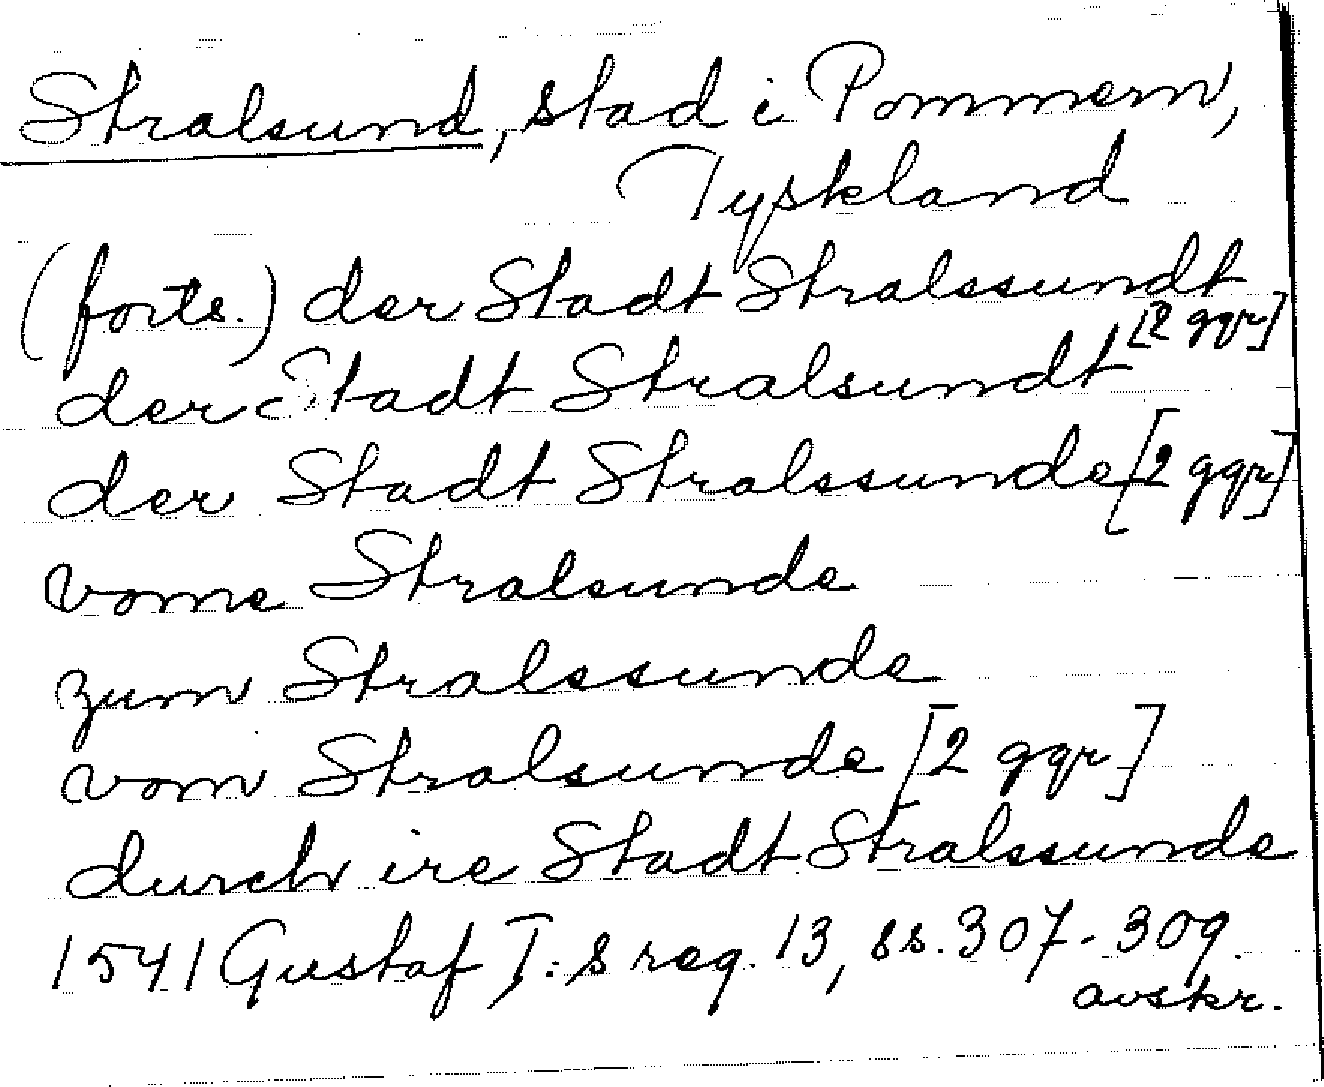 Stralsund, stad i Pommern,
Tyskland
(forts.) der Stadt Stralssundt
[2 ggr]
der Stadt Stralsundt
der Stadt Stralssunde [2 ggr]
vome Stralsunde
zum Stralssunde
vom Stralsunde [2 ggr]
durch ire Stadt Stralssunde
1541 Gustaf I:s reg. 13, ss. 307-309.
avskr.